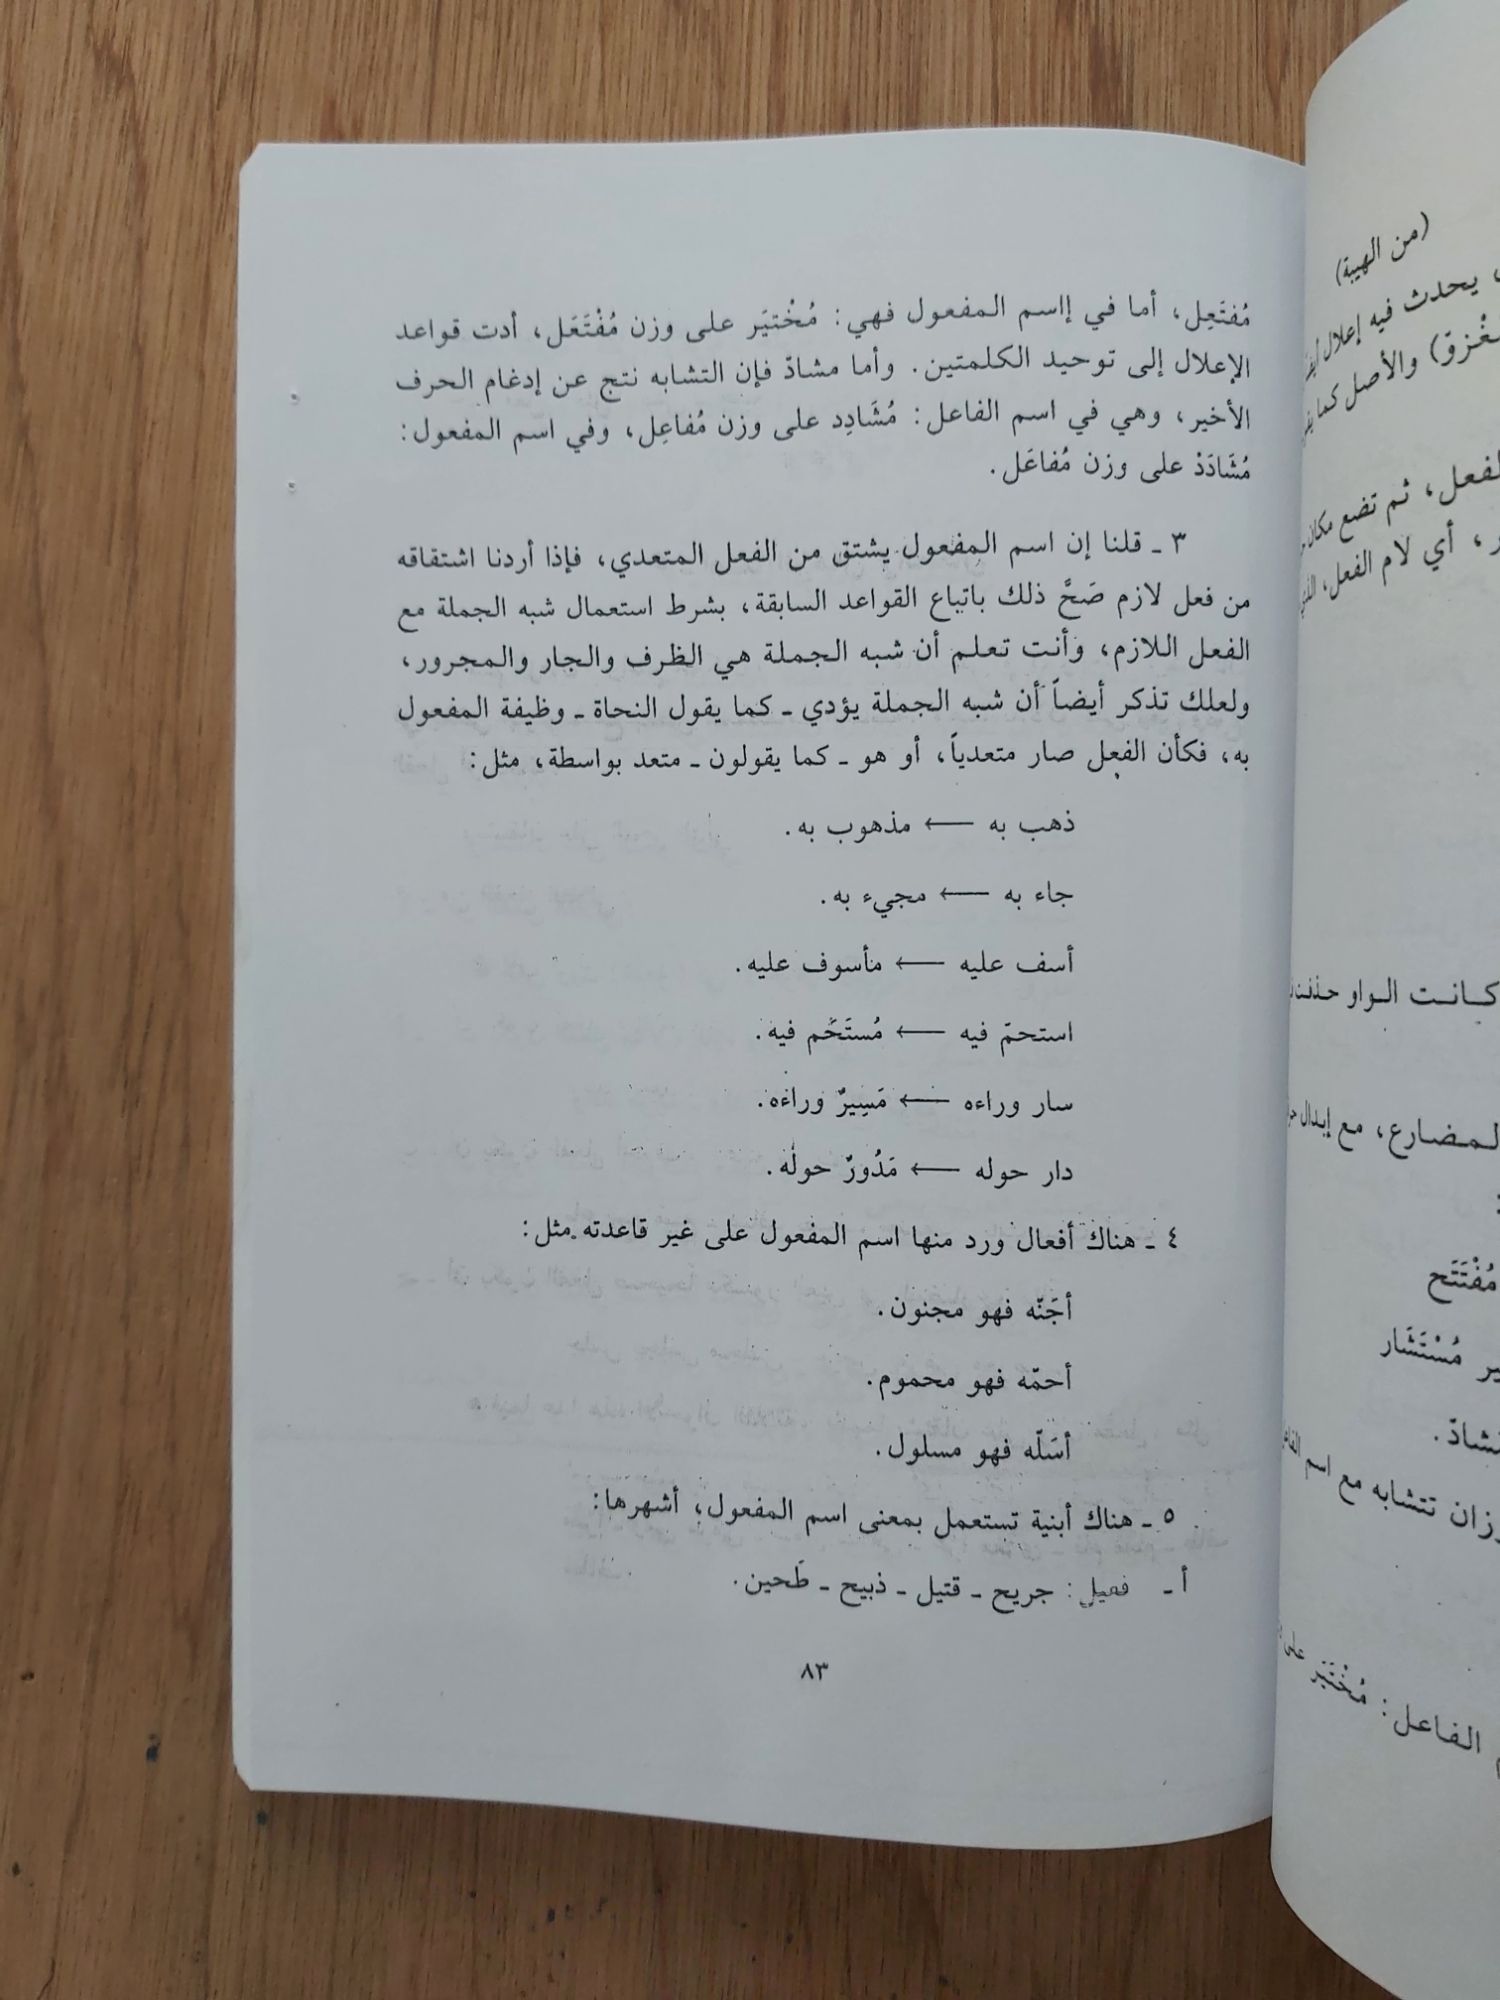 مُفتَعِل، أما في إاسم المفعول فهي: مُخْتيَر على وزن مُفْتَعَل، أدت قواعد
الإعلال إلى توحيد الكلمتين. وأما مشادّ فإن التشابه نتج عن إدغام الحرف
الأخير، وهي في اسم الفاعل: مُشَادِد على وزن مُفاعِل، وفي اسم المفعول:
مُشَادَدْ على وزن مُفاعَل.
٣ ـ قلنا إن اسم المفعول يشتق من الفعل المتعدي، فإذا أردنا اشتقاقه
من فعل لازم صَحَّ ذلك باتباع القواعد السابقة، بشرط استعمال شبه الجملة مع
الفعل اللازم، وأنت تعلم أن شبه الجملة هي الظرف والجار والمجرور،
ولعلك تذكر أيضاً أن شبه الجملة يؤدي ـ كما يقول النحاة ـ وظيفة المفعول
به، فكأن الفعل صار متعدياً، أو هو ـ كما يقولون ـ متعد بواسطة، مثل:
ذهب به ← مذهوب به.
جاء به ← مجيء به.
أسف عليه ← مأسوف عليه.
استحمّ فيه ← مُستَحَم فيه.
سار وراءه ← مَسِيرٌ وراءه.
دار حوله ← مَدُورٌ حوله.
٤ ـ هناك أفعال ورد منها اسم المفعول على غير قاعدته مثل:
أجَنّه فهو مجنون.
أحمّه فهو محموم.
أسَلّه فهو مسلول.
٥ ـ هناك أبنية تستعمل بمعنى اسم المفعول، أشهرها:
أ ـ فعيل: جريح ـ قتيل ـ ذبيح ـ طَحين.
٨٣
(من الهيبة)
يحدث فيه إعلال
والأصل كما
الفعل، ثم تضع مكان
أي لام الفعل،
كانت الواو حذفت
المضارع، مع إبدال
مُفْتَتَح
مُسْتَشَار
تتشابه مع اسم
الفاعل: مُخْتَيِر على